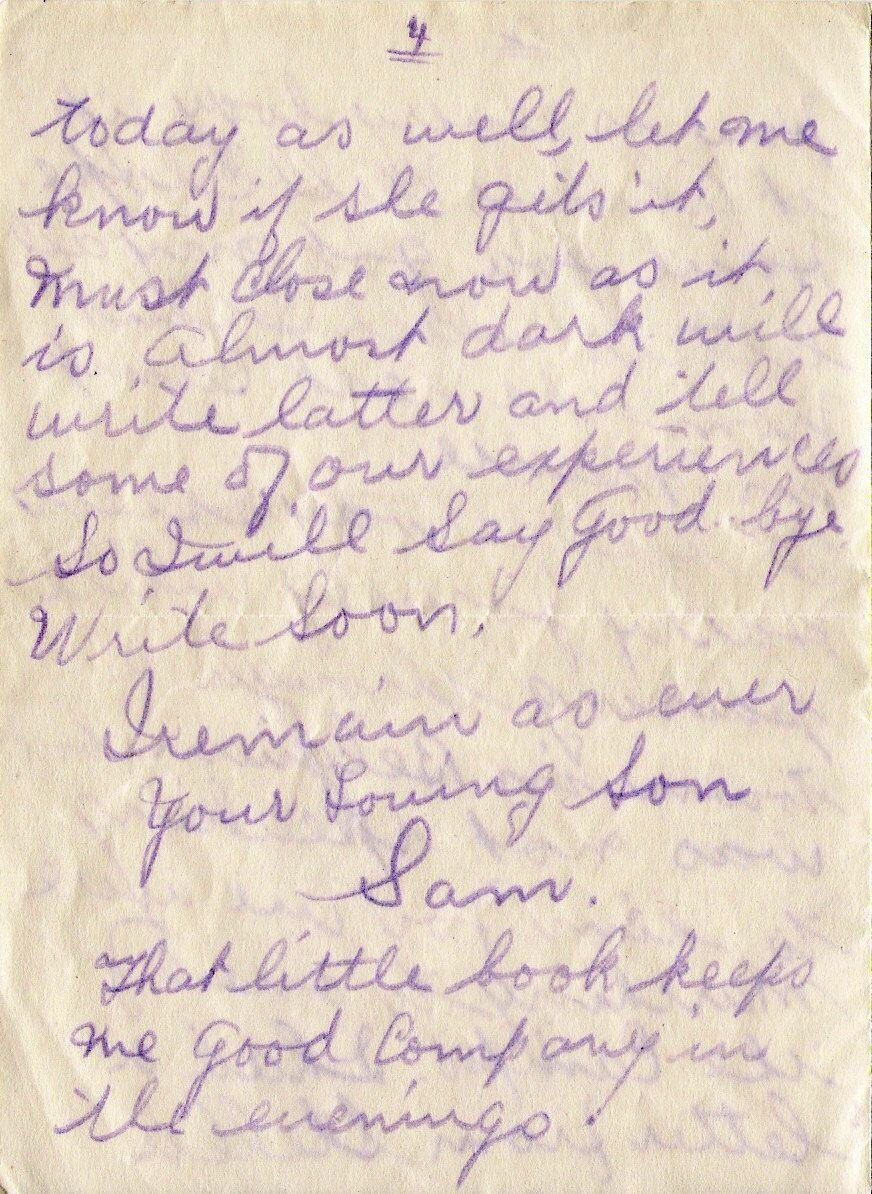 4
today as well, let me
know if she gits it,
must close now as it
is almost dark will
write latter and tell
some of our experiences
So I will Say Good bye
Write Soon.
I remain as ever
Your Loving Son
Sam.
That little book keeps
me Good Company in
the evenings.